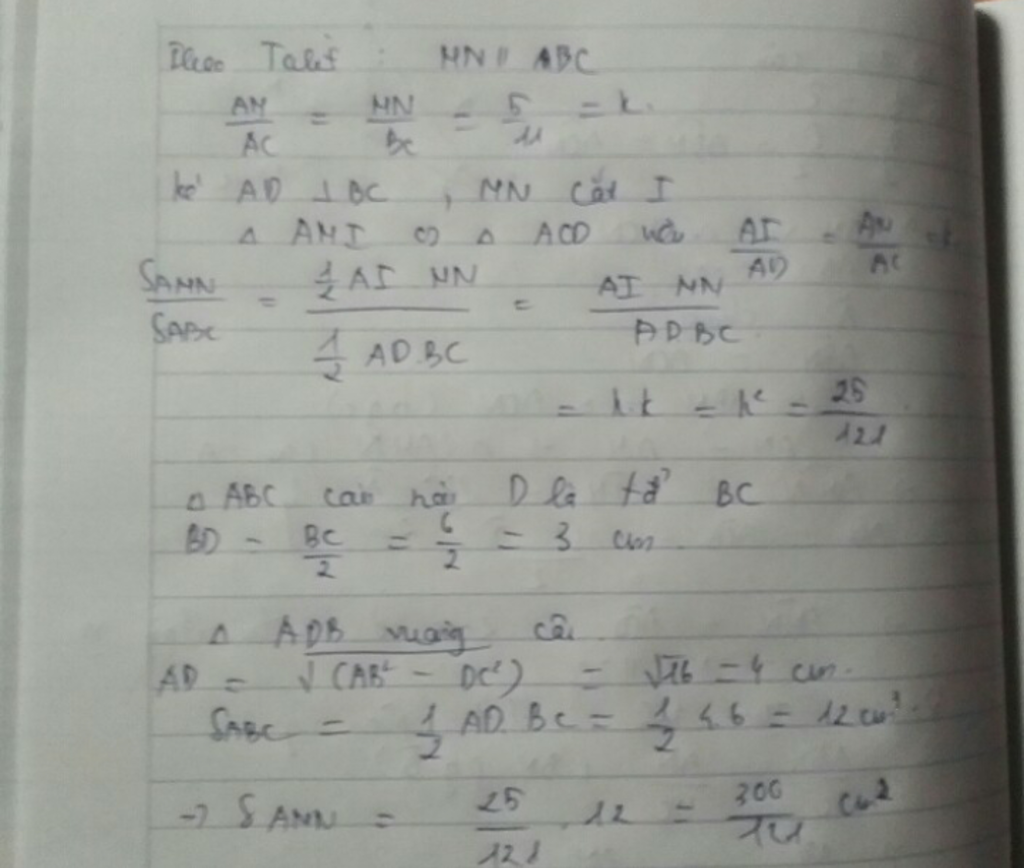 Theo Talet : MN // ABC
AM/AC = MN/BC = 5/11 = k.
kẻ AD ⊥ BC , MN cắt I
Δ AMI ∽ Δ ACD nên AI/AD = AM/AC = k
SAMN/SABC = (1/2 AI MN)/(1/2 AD.BC) = (AI MN)/(AD BC)
= k.k = k² = 25/121
Δ ABC cân nên D là tđ BC
BD = BC/2 = 6/2 = 3 cm
Δ ADB vuông
AD = √(AB² - DC²) = √16 = 4 cm.
SABC = 1/2 AD.BC = 1/2 4.6 = 12 cm².
→ SAMN = 25/121 . 12 = 300/121 cm²